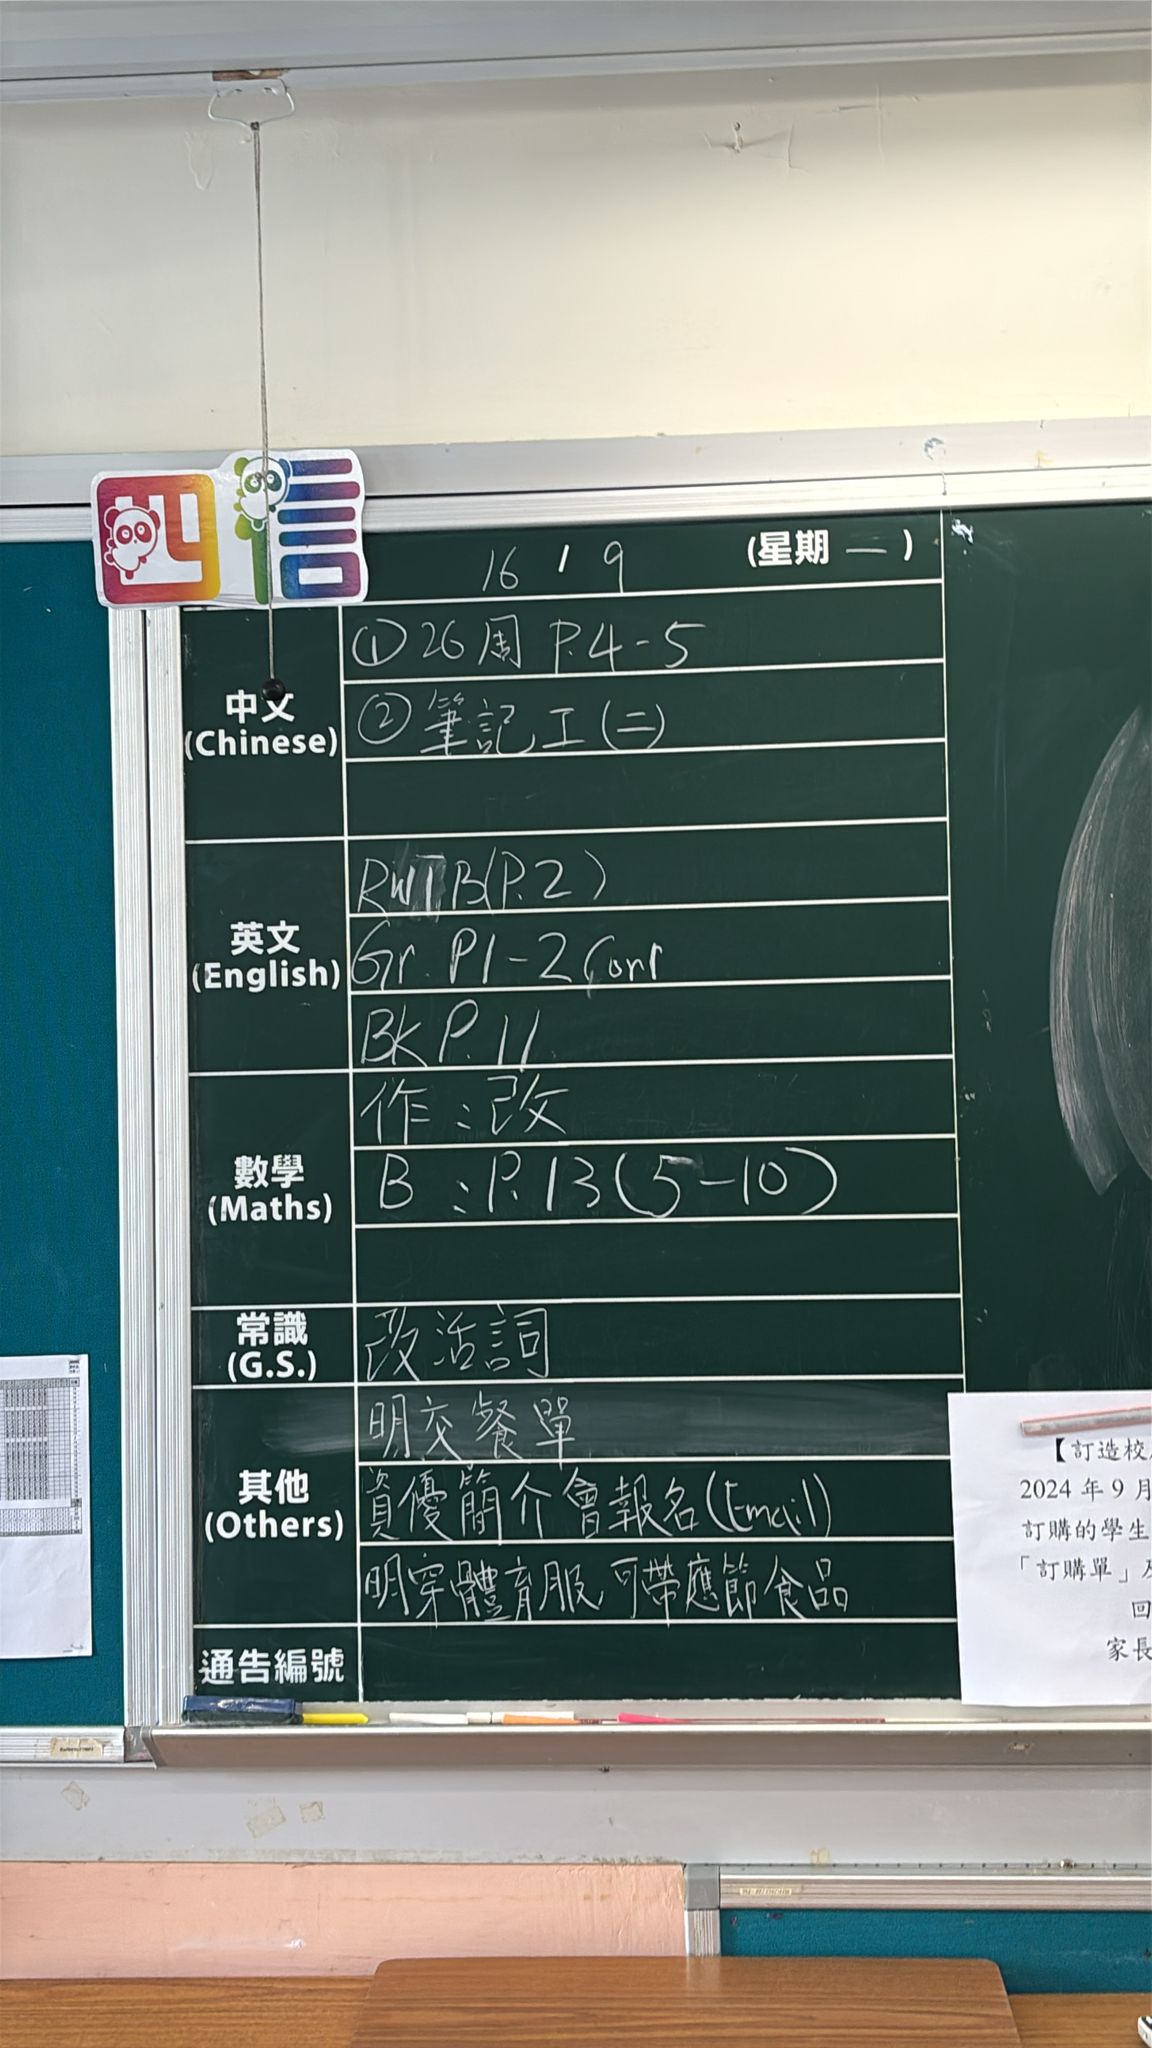 四信
16 / 9 (星期 一 )
中文
(Chinese)
① 26周 P.4-5
② 筆記工(二)
英文
(English)
B(P.2)
Gr. P1-2 Corr
BK P.11
數學
(Maths)
作:改
B:P.13(5-10)
常識
(G.S.)
改活詞
其他
(Others)
明交餐單
資優簡介會報名(Email)
明穿體育服,可帶應節食品
通告編號
【訂造校
2024 年 9 月
訂購的學生
「訂購單」及
回
家長